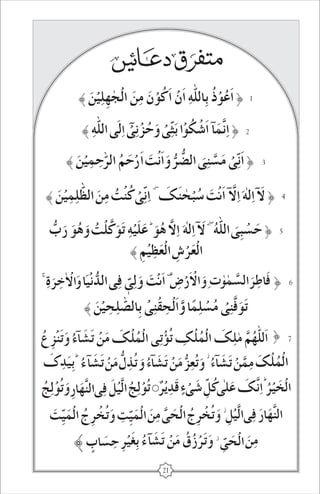 متفرق دعائیں
﴿ اَعُوْذُ بِاللّٰهِ اَنْ اَكُوْنَ مِنَ الْجٰهِلِيْنَ ﴾ 1
﴿ اِنَّمَآ اَشْكُوْا بَثِّيْ وَحُزْنِيْٓ اِلَى اللّٰهِ ﴾ 2
﴿ اَنِّيْ مَسَّنِيَ الضُّرُّ وَاَنْتَ اَرْحَمُ الرّٰحِمِيْنَ ﴾ 3
﴿ لَآ اِلٰهَ اِلَّآ اَنْتَ سُبْحٰنَكَ ۖ اِنِّيْ كُنْتُ مِنَ الظّٰلِمِيْنَ ﴾ 4
﴿ حَسْبِيَ اللّٰهُ ۖ لَآ اِلٰهَ اِلَّا هُوَ ؕ عَلَيْهِ تَوَكَّلْتُ وَهُوَ رَبُّ 5
الْعَرْشِ الْعَظِيْمِ ﴾
﴿ فَاطِرَ السَّمٰوٰتِ وَالْاَرْضِ ۟ اَنْتَ وَلِيّٖ فِى الدُّنْيَا وَالْاٰخِرَةِ ۚ 6
تَوَفَّنِيْ مُسْلِمًا وَّاَلْحِقْنِيْ بِالصّٰلِحِيْنَ ﴾
﴿ اللّٰهُمَّ مٰلِكَ الْمُلْكِ تُؤْتِى الْمُلْكَ مَنْ تَشَآءُ وَتَنْزِعُ 7
الْمُلْكَ مِمَّنْ تَشَآءُ ۚ وَتُعِزُّ مَنْ تَشَآءُ وَتُذِلُّ مَنْ تَشَآءُ ؕ بِيَدِكَ
الْخَيْرُ ؕ اِنَّكَ عَلٰى كُلِّ شَيْءٍ قَدِيْرٌ ۝ تُوْلِجُ الَّيْلَ فِى النَّهَارِ وَتُوْلِجُ
النَّهَارَ فِى الَّيْلِ ۚ وَتُخْرِجُ الْحَيَّ مِنَ الْمَيِّتِ وَتُخْرِجُ الْمَيِّتَ
مِنَ الْحَيِّ ۚ وَتَرْزُقُ مَنْ تَشَآءُ بِغَيْرِ حِسَابٍ ﴾
21